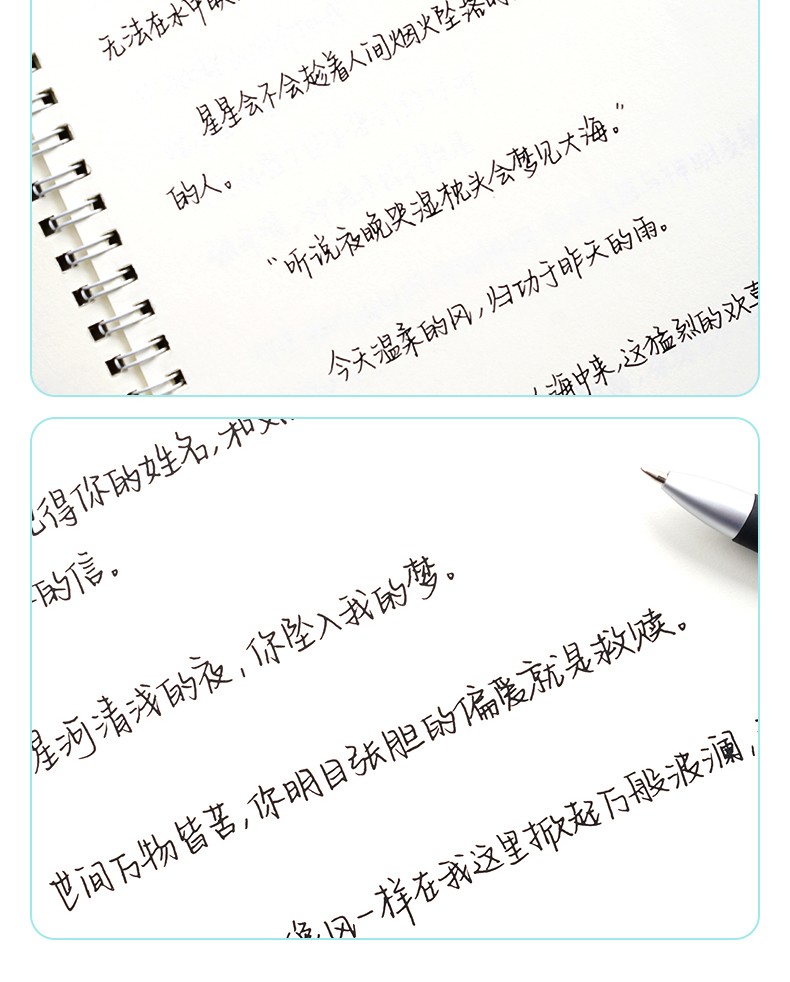 无法在水中
星星会不会趁着人间烟火坠落的
的人。
“听说夜晚哭湿枕头会梦见大海。”
今天温柔的风,归功于昨天的雨。
海中来,这猛烈的欢喜
记得你的姓名,和
的信。
星河清浅的夜,你坠入我的梦。
世间万物皆苦,你明目张胆的偏爱就是救赎。
像风一样在我这里掀起万般波澜,